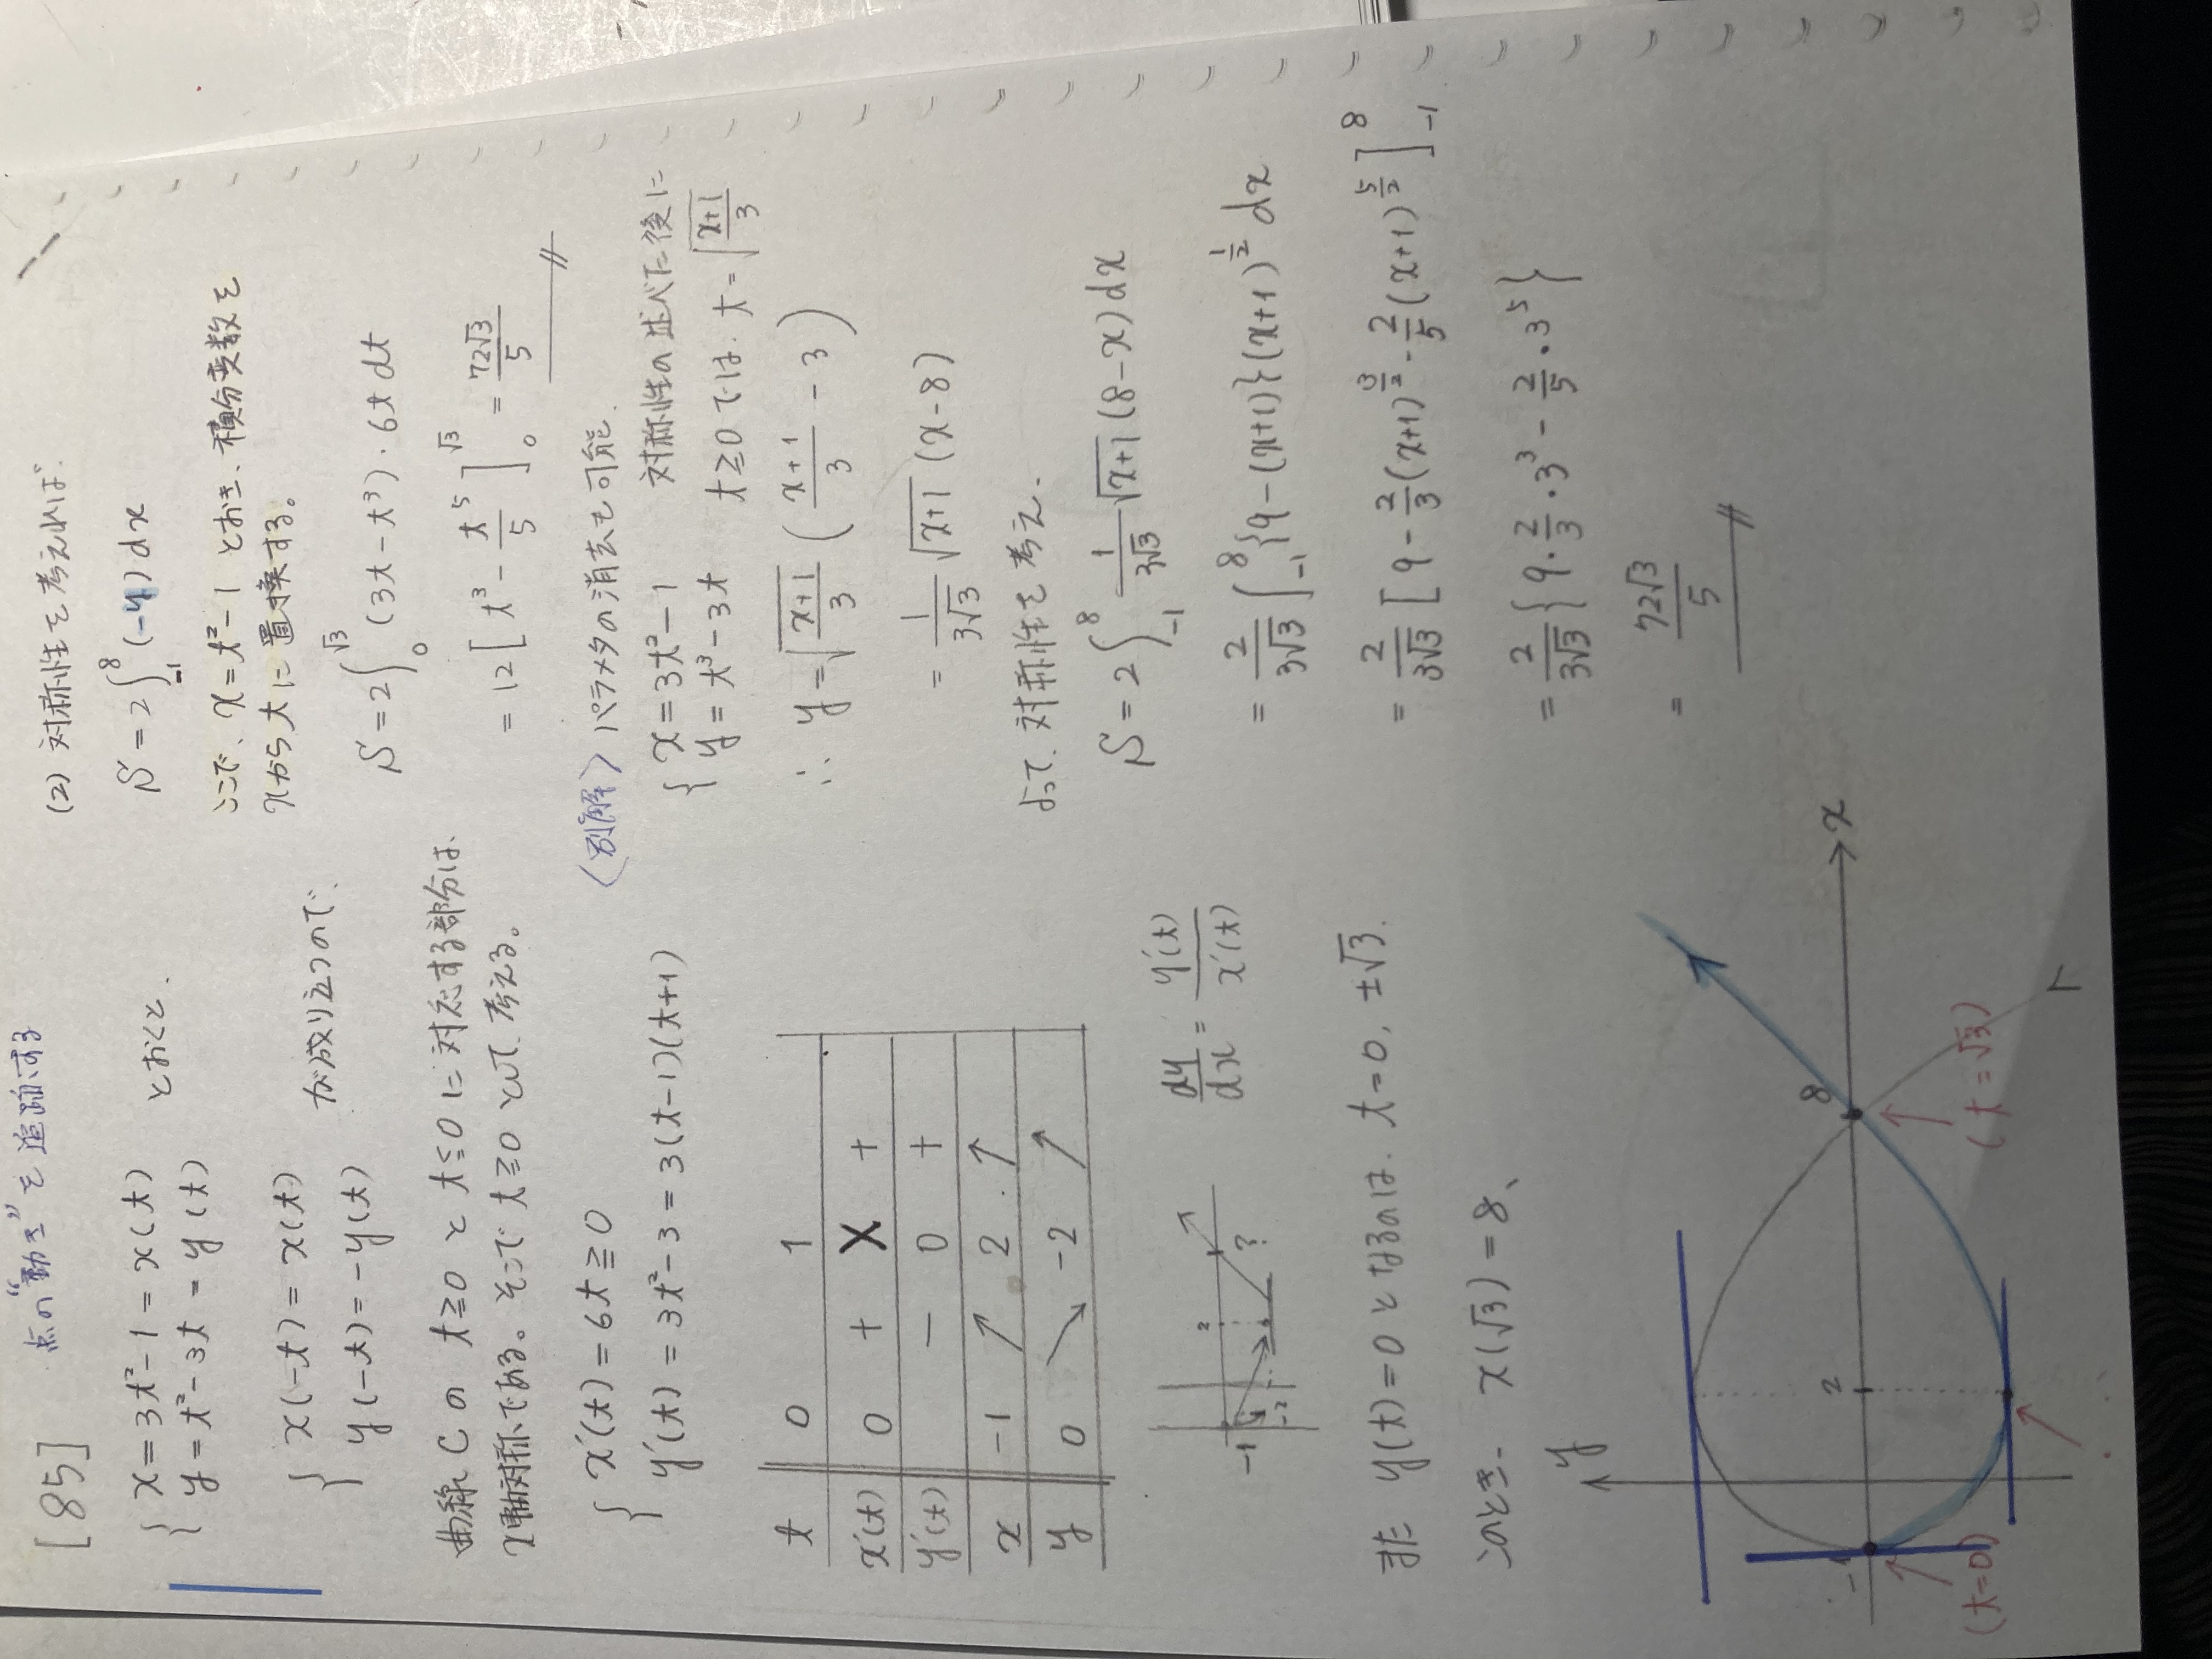 [85] 点の"動き"を追跡する
{ x = 3t² - 1 = x(t)
y = t² - 3t = y(t) とおくと、
{ x(-t) = x(t)
y(-t) = -y(t) が成り立つので、
曲線 C の t≧0 と t≦0 に対応する部分は、
x軸対称である。そこで t≧0 として考える。
{ x'(t) = 6t ≧ 0
y'(t) = 3t² - 3 = 3(t-1)(t+1)
t 0 1
x'(t) 0 + X +
y'(t) - 0 +
x -1 ↗ 2 ↗
y 0 ↘ -2 ↗
-1 2 -2 ?
dy/dx = y'(t)/x'(t)
また y(t) = 0 となるのは、t = 0, ±√3.
このとき、x(√3) = 8、
y
-1 2 8 x
(t=0) (t=√3)
(2) 対称性を考えれば、
S = 2∫_{-1}^{8} (-y) dx
ここで、x = t² - 1 とおき、積分変数を
xから t に置換する。
S = 2∫_{0}^{√3} (3t - t³)・6t dt
= 12 [ t³ - t⁵/5 ]_{0}^{√3} = 72√3/5
〈別解〉パラメタの消去も可能.
{ x = 3t² - 1
y = t³ - 3t 対称性の述べた後に
t≧0 では、t = √((x+1)/3)
∴ y = √((x+1)/3) ( (x+1)/3 - 3 )
= 1/(3√3) √(x+1) (x-8)
よって、対称性を考え、
S = 2∫_{-1}^{8} 1/(3√3) √(x+1) (8-x) dx
= 2/(3√3) ∫_{-1}^{8} {9 - (x+1)}(x+1)^{1/2} dx
= 2/(3√3) [ 9・2/3 (x+1)^{3/2} - 2/5 (x+1)^{5/2} ]_{-1}^{8}
= 2/(3√3) { 9・2/3・3³ - 2/5・3⁵ }
= 72√3/5